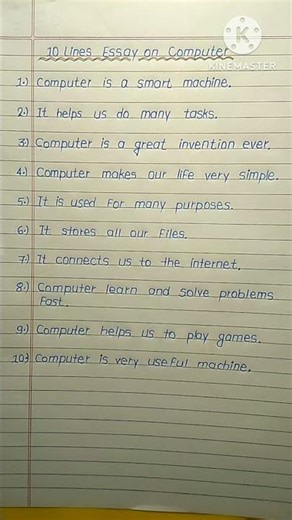 KINEMASTER
10 Lines Essay on Computer
1.) Computer is a smart machine.
2.) It helps us do many tasks.
3.) Computer is a great invention ever.
4.) Computer makes our life very simple.
5.) It is used for many purposes.
6.) It stores all our files.
7.) It connects us to the internet.
8.) Computer learn and solve problems
fast.
9.) Computer helps us to play games.
10.) Computer is very useful machine.